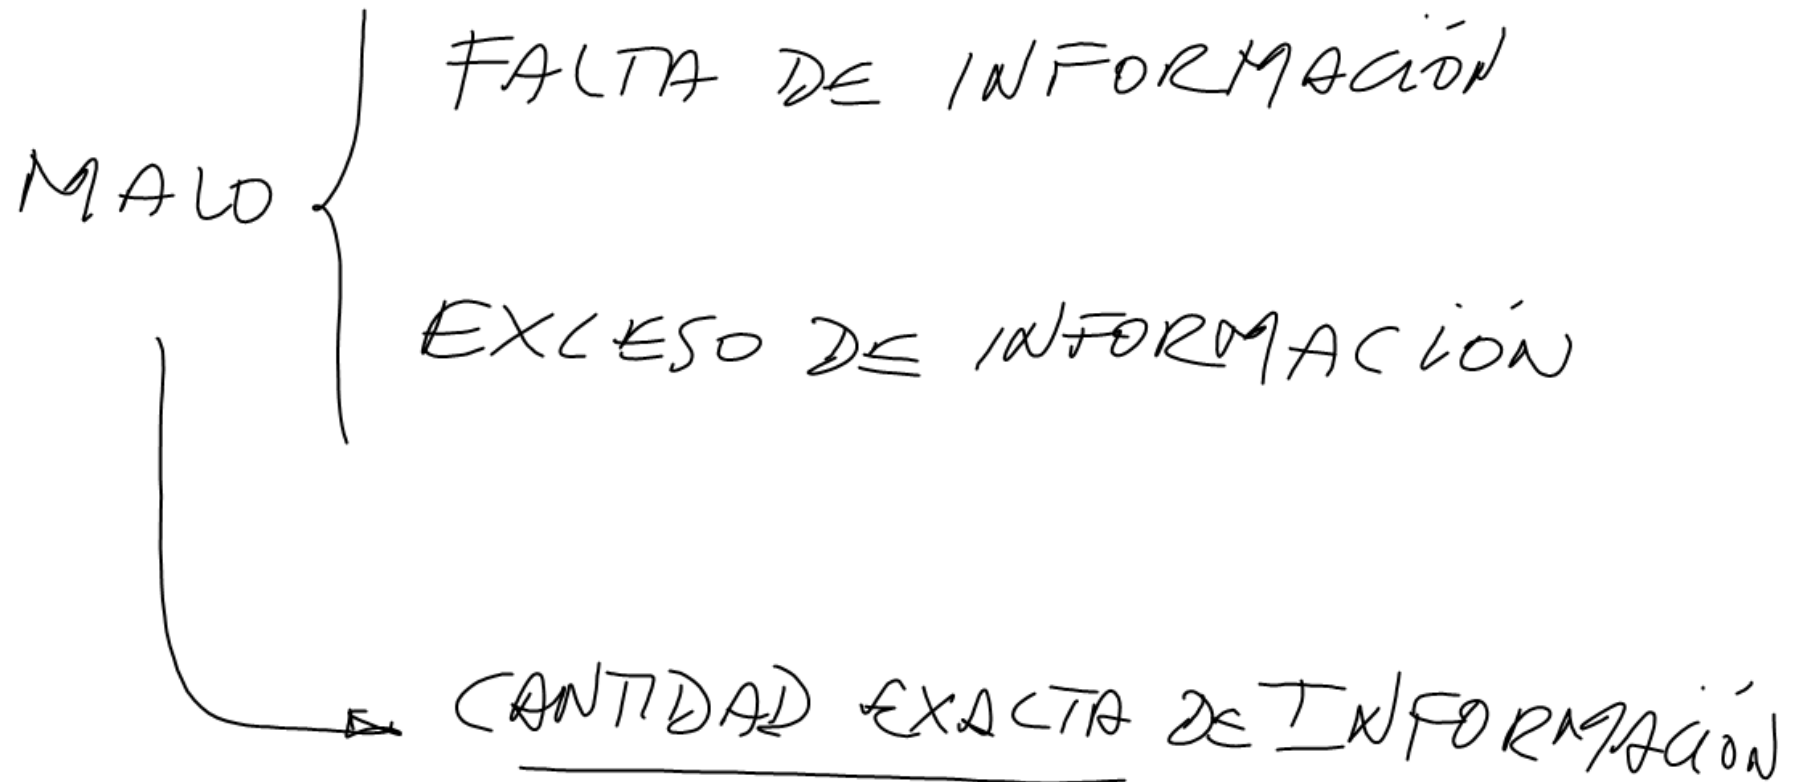 FALTA DE INFORMACIÓN
MALO
EXCESO DE INFORMACIÓN
CANTIDAD EXACTA DE INFORMACIÓN